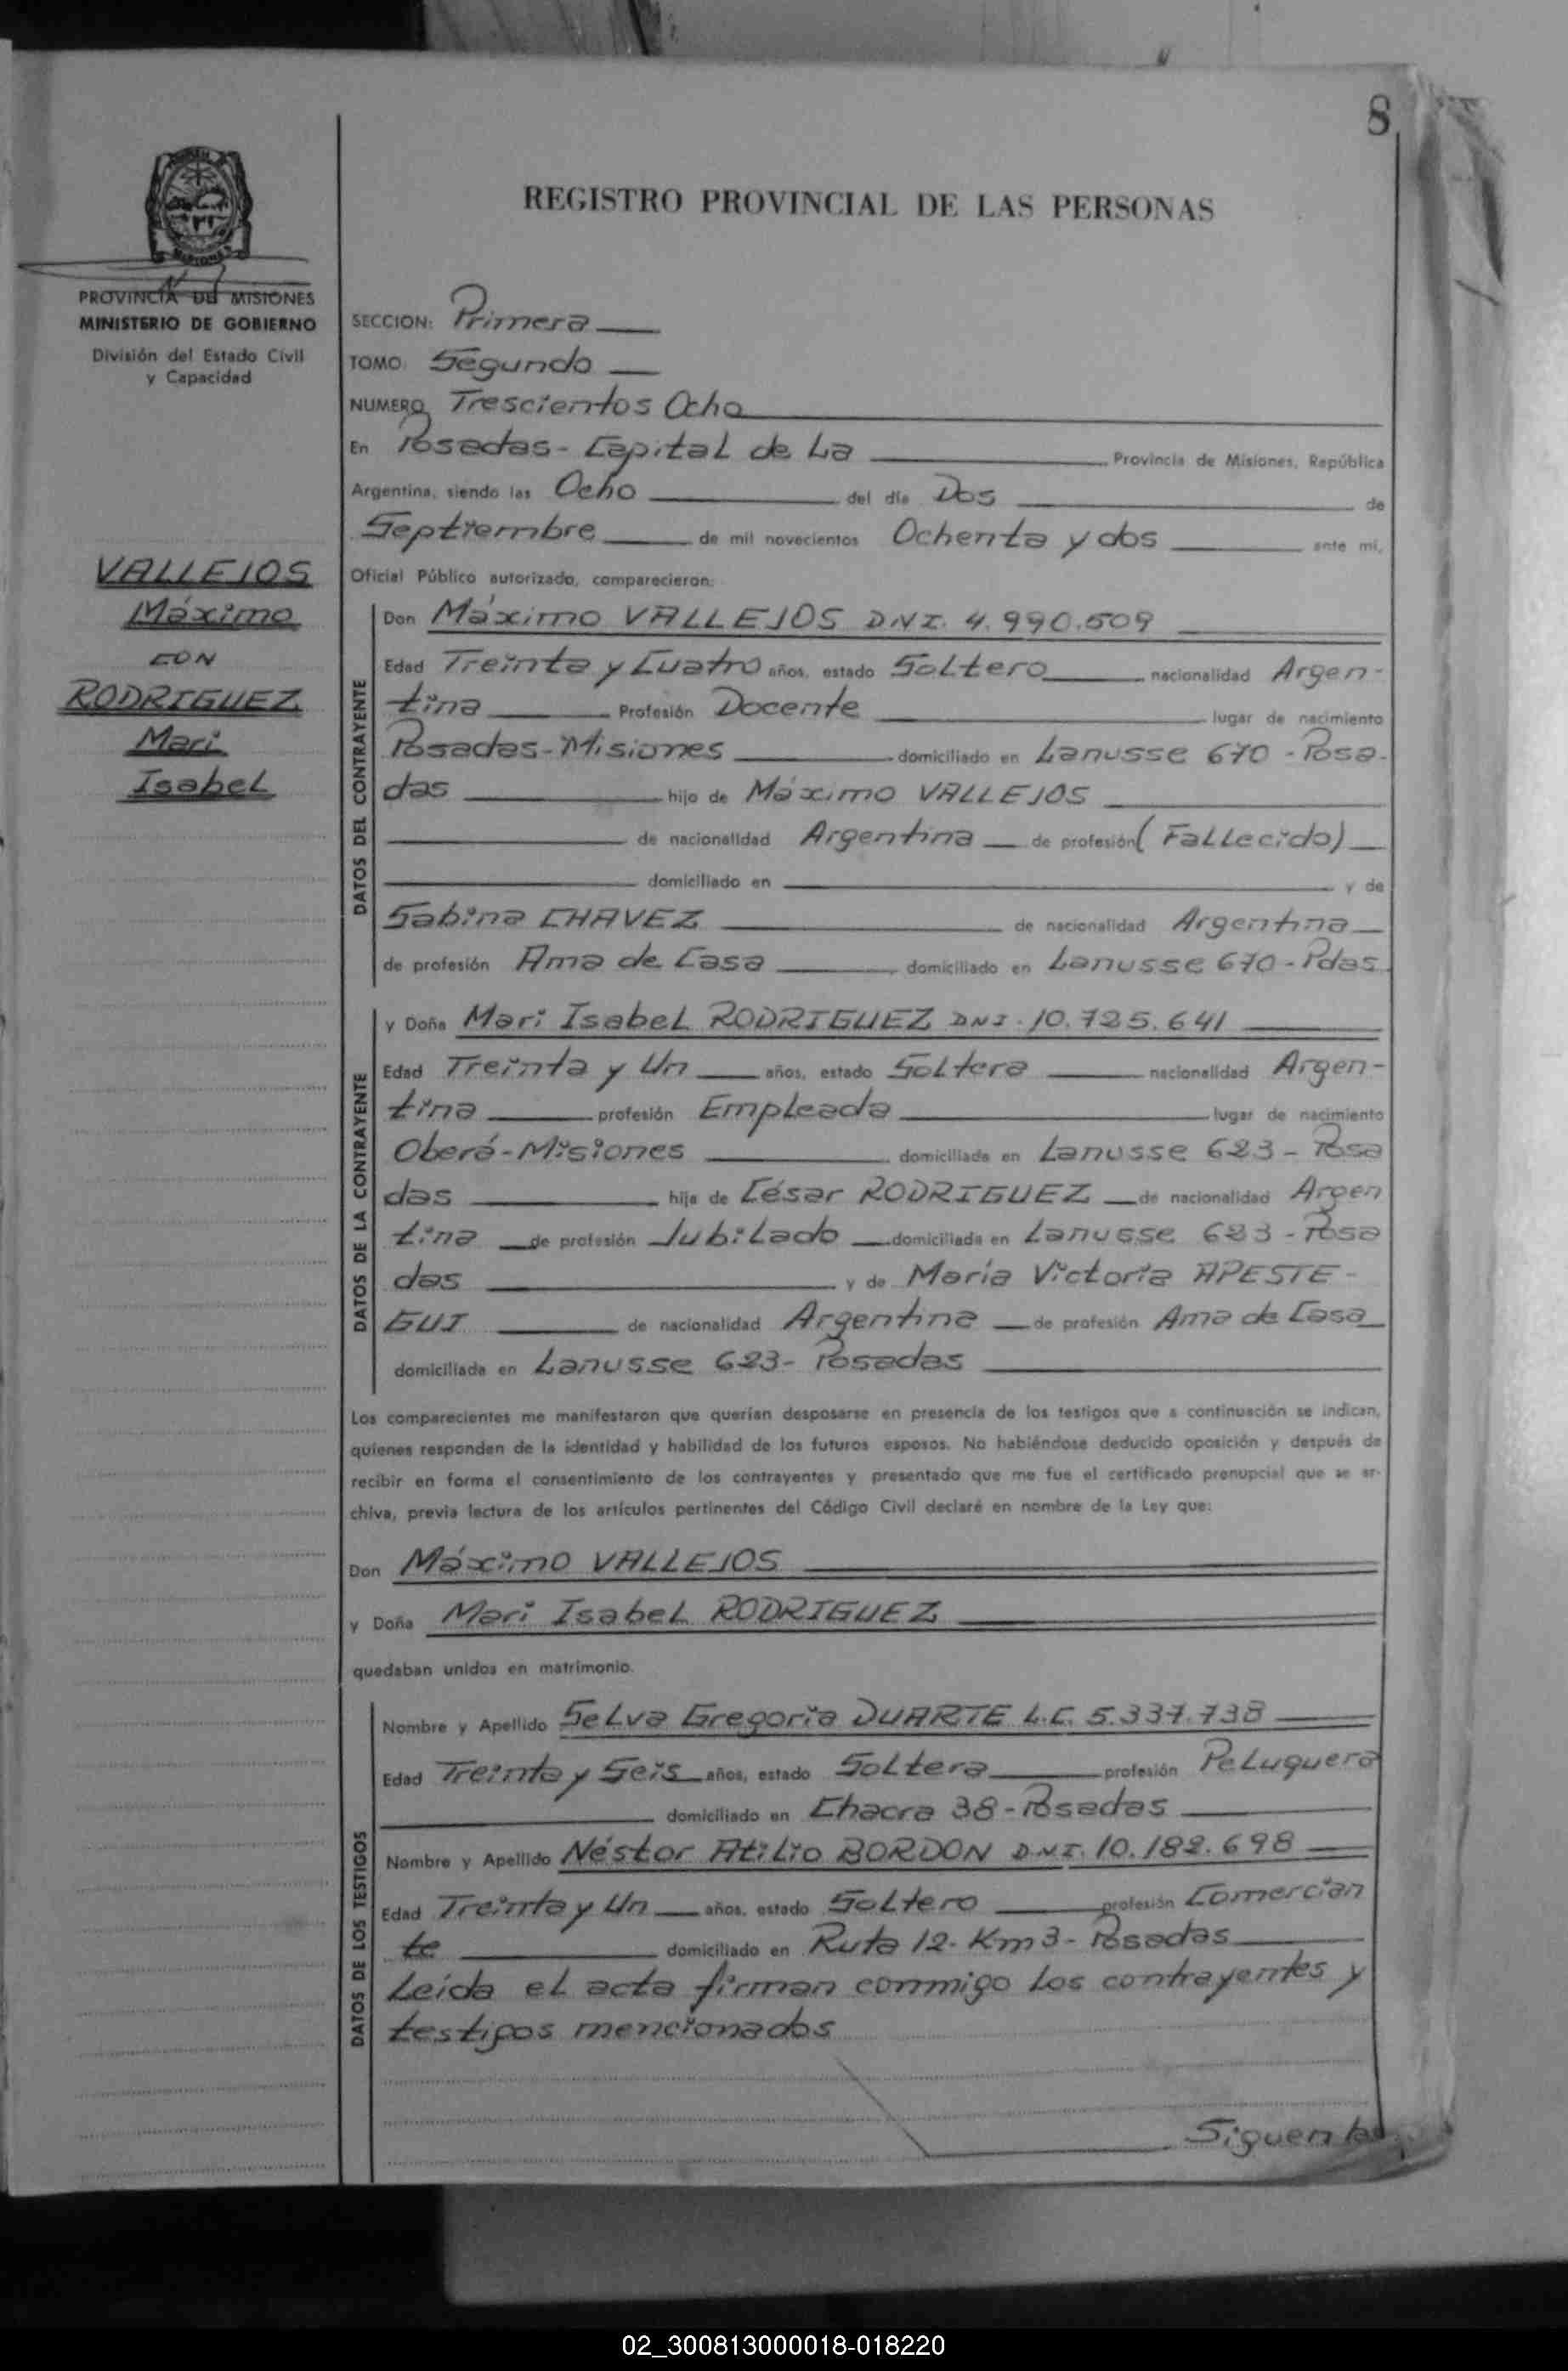 8
REGISTRO PROVINCIAL DE LAS PERSONAS
PROVINCIA DE MISIONES
MINISTERIO DE GOBIERNO
División del Estado Civil
y Capacidad
VALLEJOS
Máximo
CON
RODRIGUEZ
Mari
Isabel
SECCION: Primera
TOMO: Segundo
NUMERO Trescientos Ocho
En Posadas - Capital de La Provincia de Misiones, República
Argentina, siendo las Ocho del día Dos de
Septiembre de mil novecientos Ochenta y dos ante mi,
Oficial Público autorizado, comparecieron:
DATOS DEL CONTRAYENTE
Don Máximo VALLEJOS DNI. 4.990.509
Edad Treinta y Cuatro años, estado Soltero nacionalidad Argen-
tina Profesión Docente lugar de nacimiento
Posadas-Misiones domiciliado en Lanusse 670 - Posa-
das hijo de Máximo VALLEJOS
de nacionalidad Argentina de profesión (Fallecido)
domiciliado en y de
Sabina CHAVEZ de nacionalidad Argentina
de profesión Ama de Casa domiciliado en Lanusse 670 - Pdas
DATOS DE LA CONTRAYENTE
y Doña Mari Isabel RODRIGUEZ DNI. 10.725.641
Edad Treinta y Un años, estado Soltera nacionalidad Argen-
tina profesión Empleada lugar de nacimiento
Oberá-Misiones domiciliada en Lanusse 623 - Posa
das hija de César RODRIGUEZ de nacionalidad Argen
tina de profesión Jubilado domiciliada en Lanusse 623 - Posa
das y de María Victoria APESTE-
GUI de nacionalidad Argentina de profesión Ama de Casa
domiciliada en Lanusse 623 - Posadas
Los comparecientes me manifestaron que querían desposarse en presencia de los testigos que a continuación se indican,
quienes responden de la identidad y habilidad de los futuros esposos. No habiéndose deducido oposición y después de
recibir en forma el consentimiento de los contrayentes y presentado que me fue el certificado prenupcial que se ar-
chiva, previa lectura de los artículos pertinentes del Código Civil declaré en nombre de la Ley que:
Don Máximo VALLEJOS
y Doña Mari Isabel RODRIGUEZ
quedaban unidos en matrimonio.
DATOS DE LOS TESTIGOS
Nombre y Apellido Selva Gregoria DUARTE L.C. 5.337.738
Edad Treinta y Seis años, estado Soltera profesión Peluquera
domiciliado en Chacra 38 - Posadas
Nombre y Apellido Néstor Atilio BORDON DNI. 10.182.698
Edad Treinta y Un años, estado Soltero profesión Comercian
te domiciliado en Ruta 12 - Km 3 - Posadas
Leída el acta firman conmigo los contrayentes y
testigos mencionados
Siguen las
02_300813000018-018220